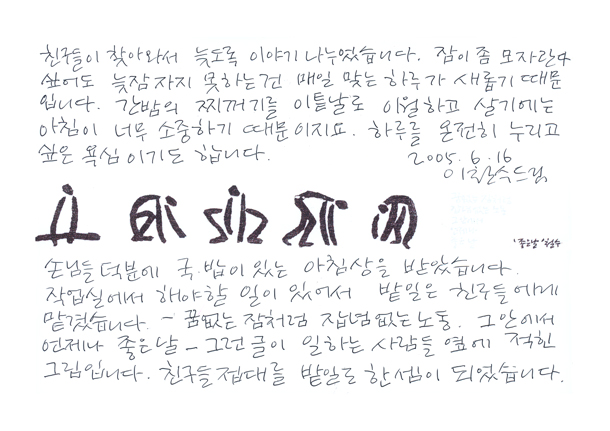 친구들이 찾아와서 늦도록 이야기 나누었습니다. 잠이 좀 모자란다
싶어도 늦잠 자지 못하는건 매일 맞는 하루가 새롭기 때문
입니다. 간밤의 찌꺼기를 이튿날로 이월하고 살기에는
아침이 너무 소중하기 때문이지요. 하루를 온전히 누리고
싶은 욕심이기도 합니다.
2005. 6. 16
이철수드림
'좋은날' 철수
손님들 덕분에 국.밥이 있는 아침상을 받았습니다.
작업실에서 해야할 일이 있어서 밭일은 친구들에게
맡겼습니다. - 꿈없는 잠처럼 잡념없는 노동. 그 안에서
언제나 좋은날 - 그런 글이 일하는 사람들 옆에 적힌
그림입니다. 친구들 접대를 밭일로 한셈이 되었습니다.